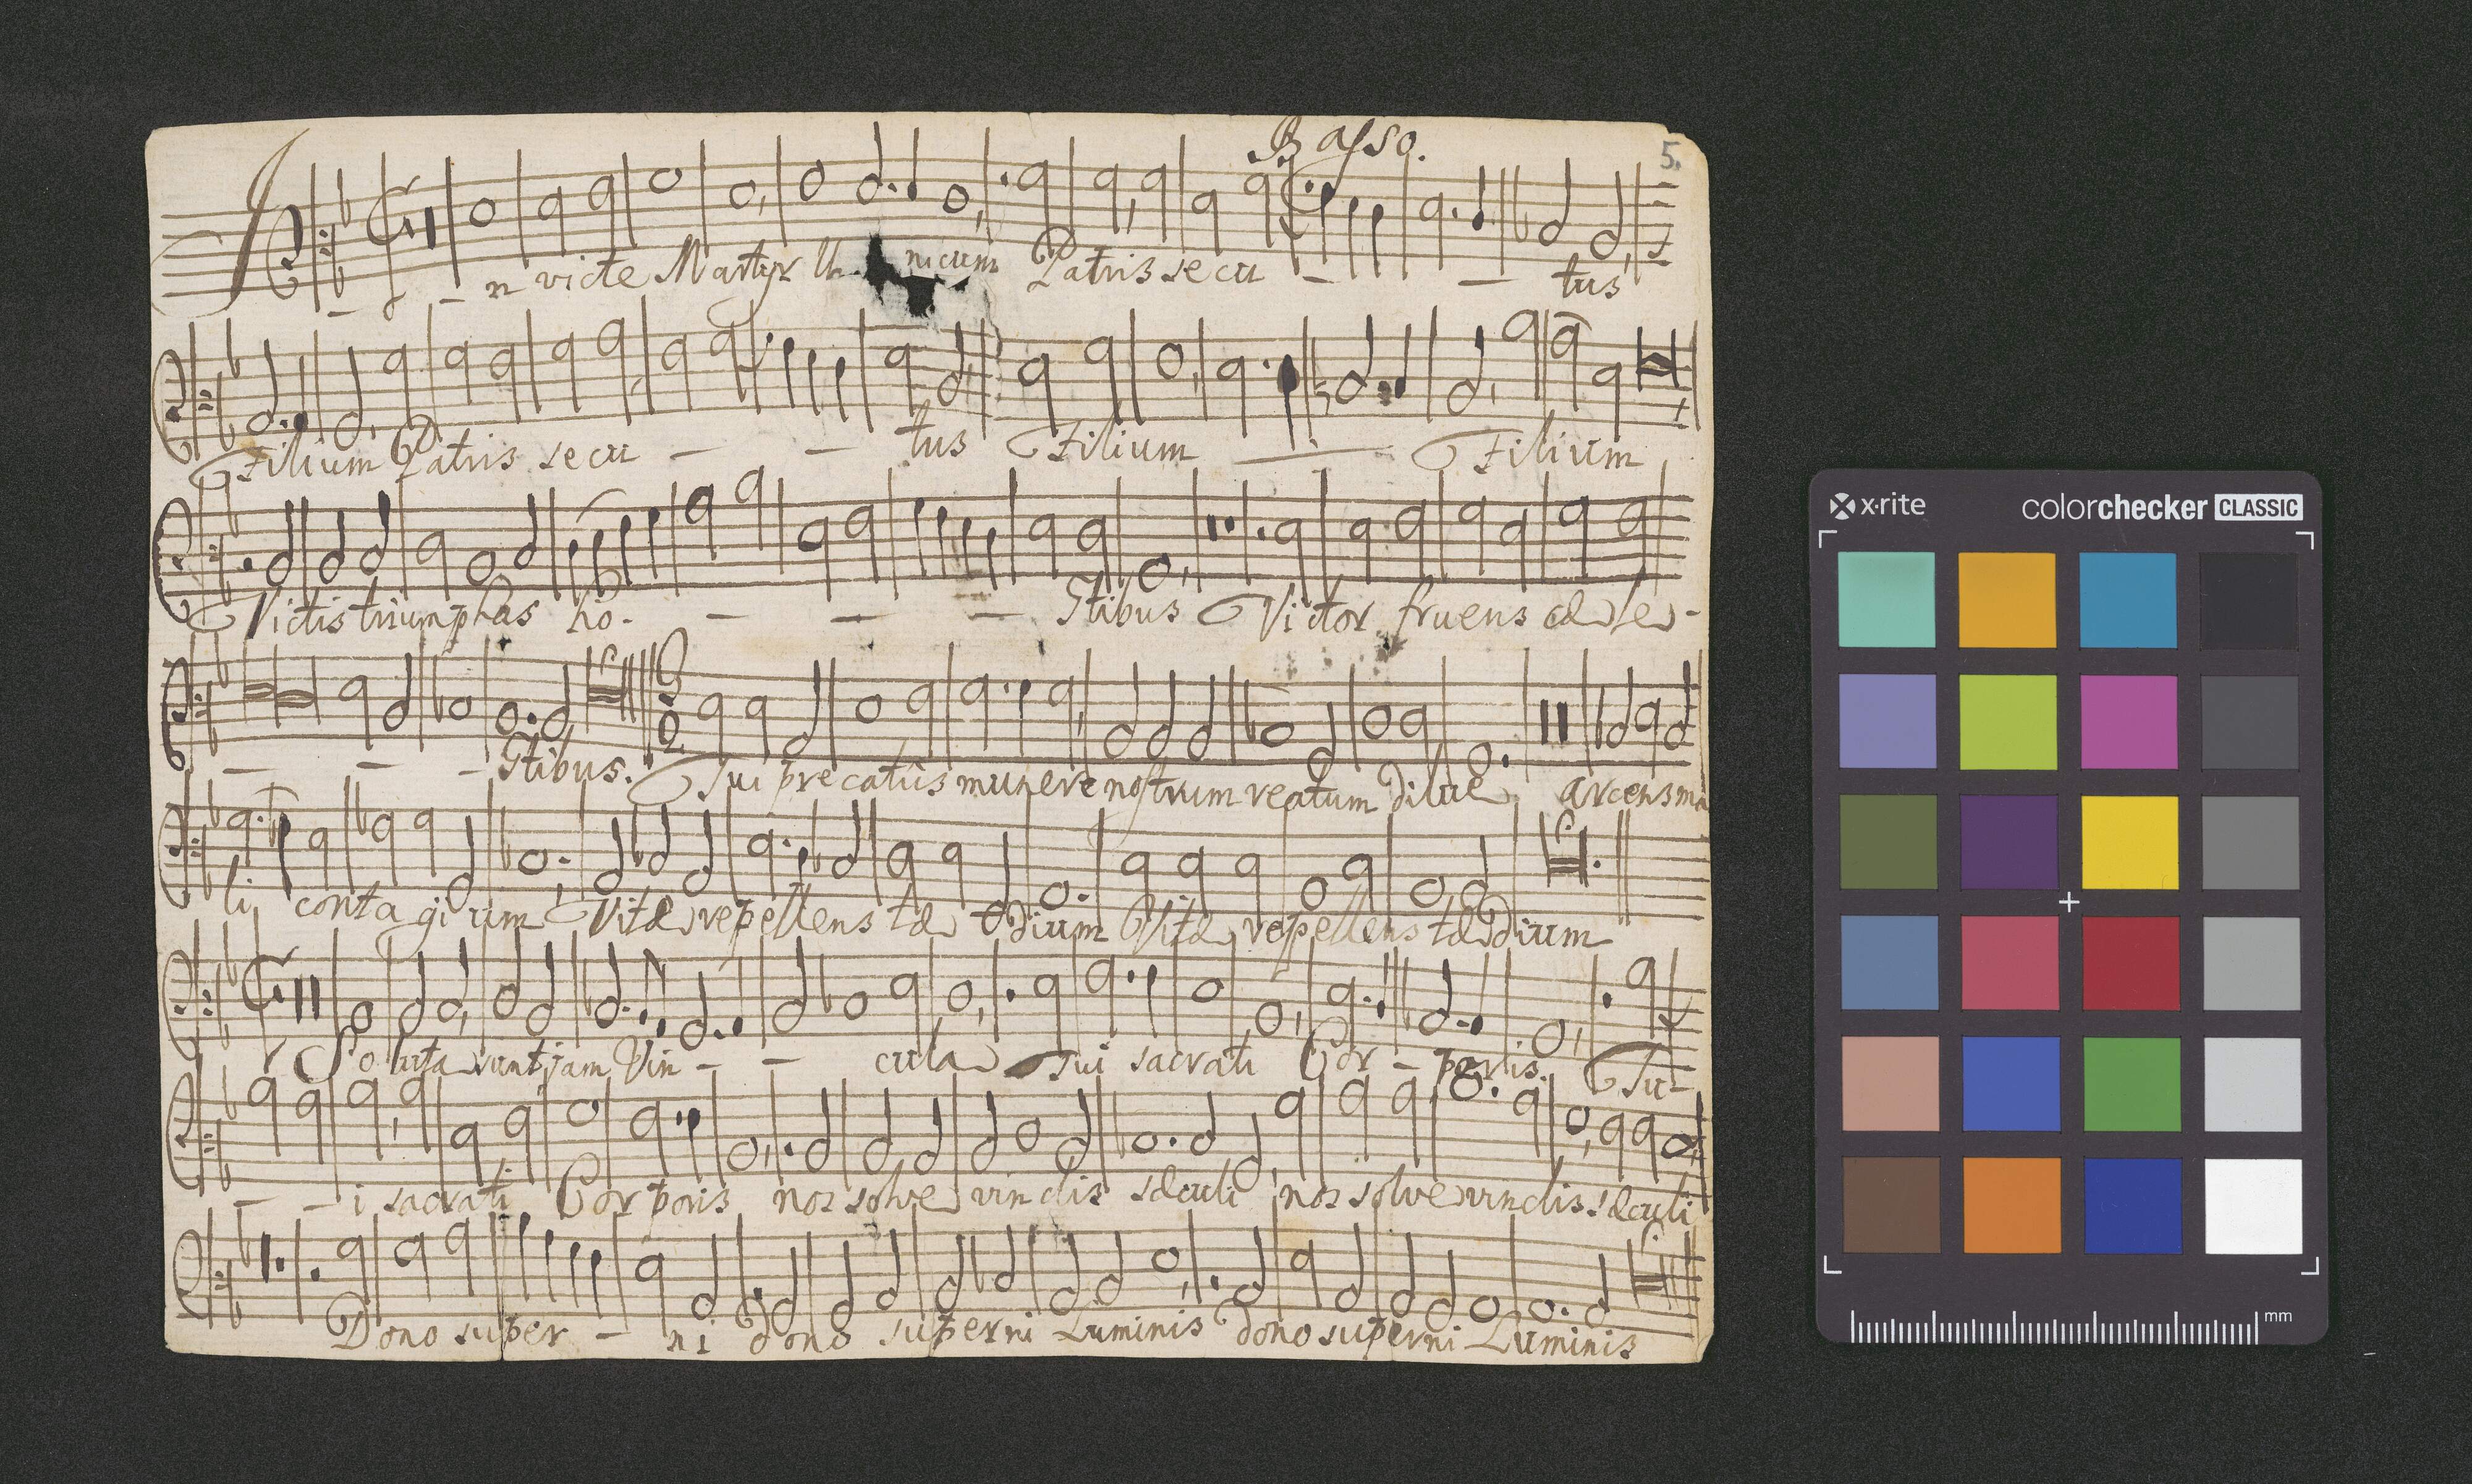 Basso.
5.
In victe Martyr Unicum Patris secu - - tus
Filium Patris secu - - tus Filium - Filium
Victis triumphas ho - - - Stibus Victor fruens cælé -
- - - Stibus. Tui precatus munere nostrum reatum dilue arcens ma
li conta gi um Vitæ repellens tæ dium Vitæ repellens tædium
Soluta sunt jam Vin - - cula Tui sacrati Cor - poris. Tu
- - i sacrati Corporis nos solve vinclis sæculi nos solve vinclis sæculi
Dono super - ni dono superni Luminis dono superni Luminis
x·rite colorchecker CLASSIC
mm